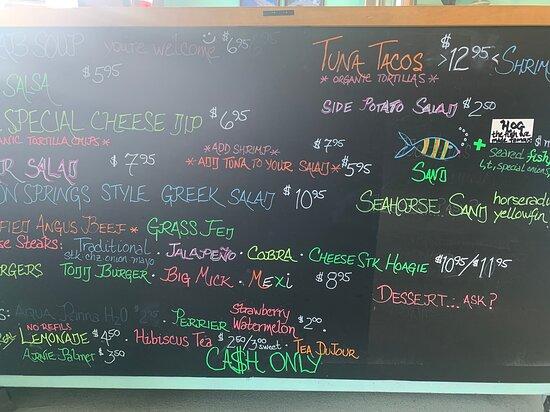 SOUP you're welcome $6.95
$5.95
SALSA
SPECIAL CHEESE DIP $6.95
TORTILLA CHIPS *
* ADD SHRIMP * $7.95
SALAD $7.95 * ADD TUNA TO YOUR SALAD * $5.95
SPRINGS STYLE GREEK SALAD $10.95
ANGUS BEEF * GRASS FED
STEAKS: Traditional · JALAPEÑO · COBRA · CHEESE STK HOAGIE $10.95/$11.95
stk.chz.onion.mayo
TODD BURGER · BIG MICK · MEXI $8.95
AQUA PANNA H2O $2.95 · PERRIER Strawberry Watermelon $2.00
NO REFILS
LEMONADE $4.50 · Hibiscus Tea $2.50/3.00 sweet · TEA DUJOUR
Arnie Palmer $3.50
CA$H ONLY
TUNA TACOS > $12.95 < SHRIM
* ORGANIC TORTILLAS *
SIDE POTATO SALAD $2.50
HOG
+ seared fish
SAND l,t,special onion
SEAHORSE SAND horserad
yellowfin
DESSERT... ASK?